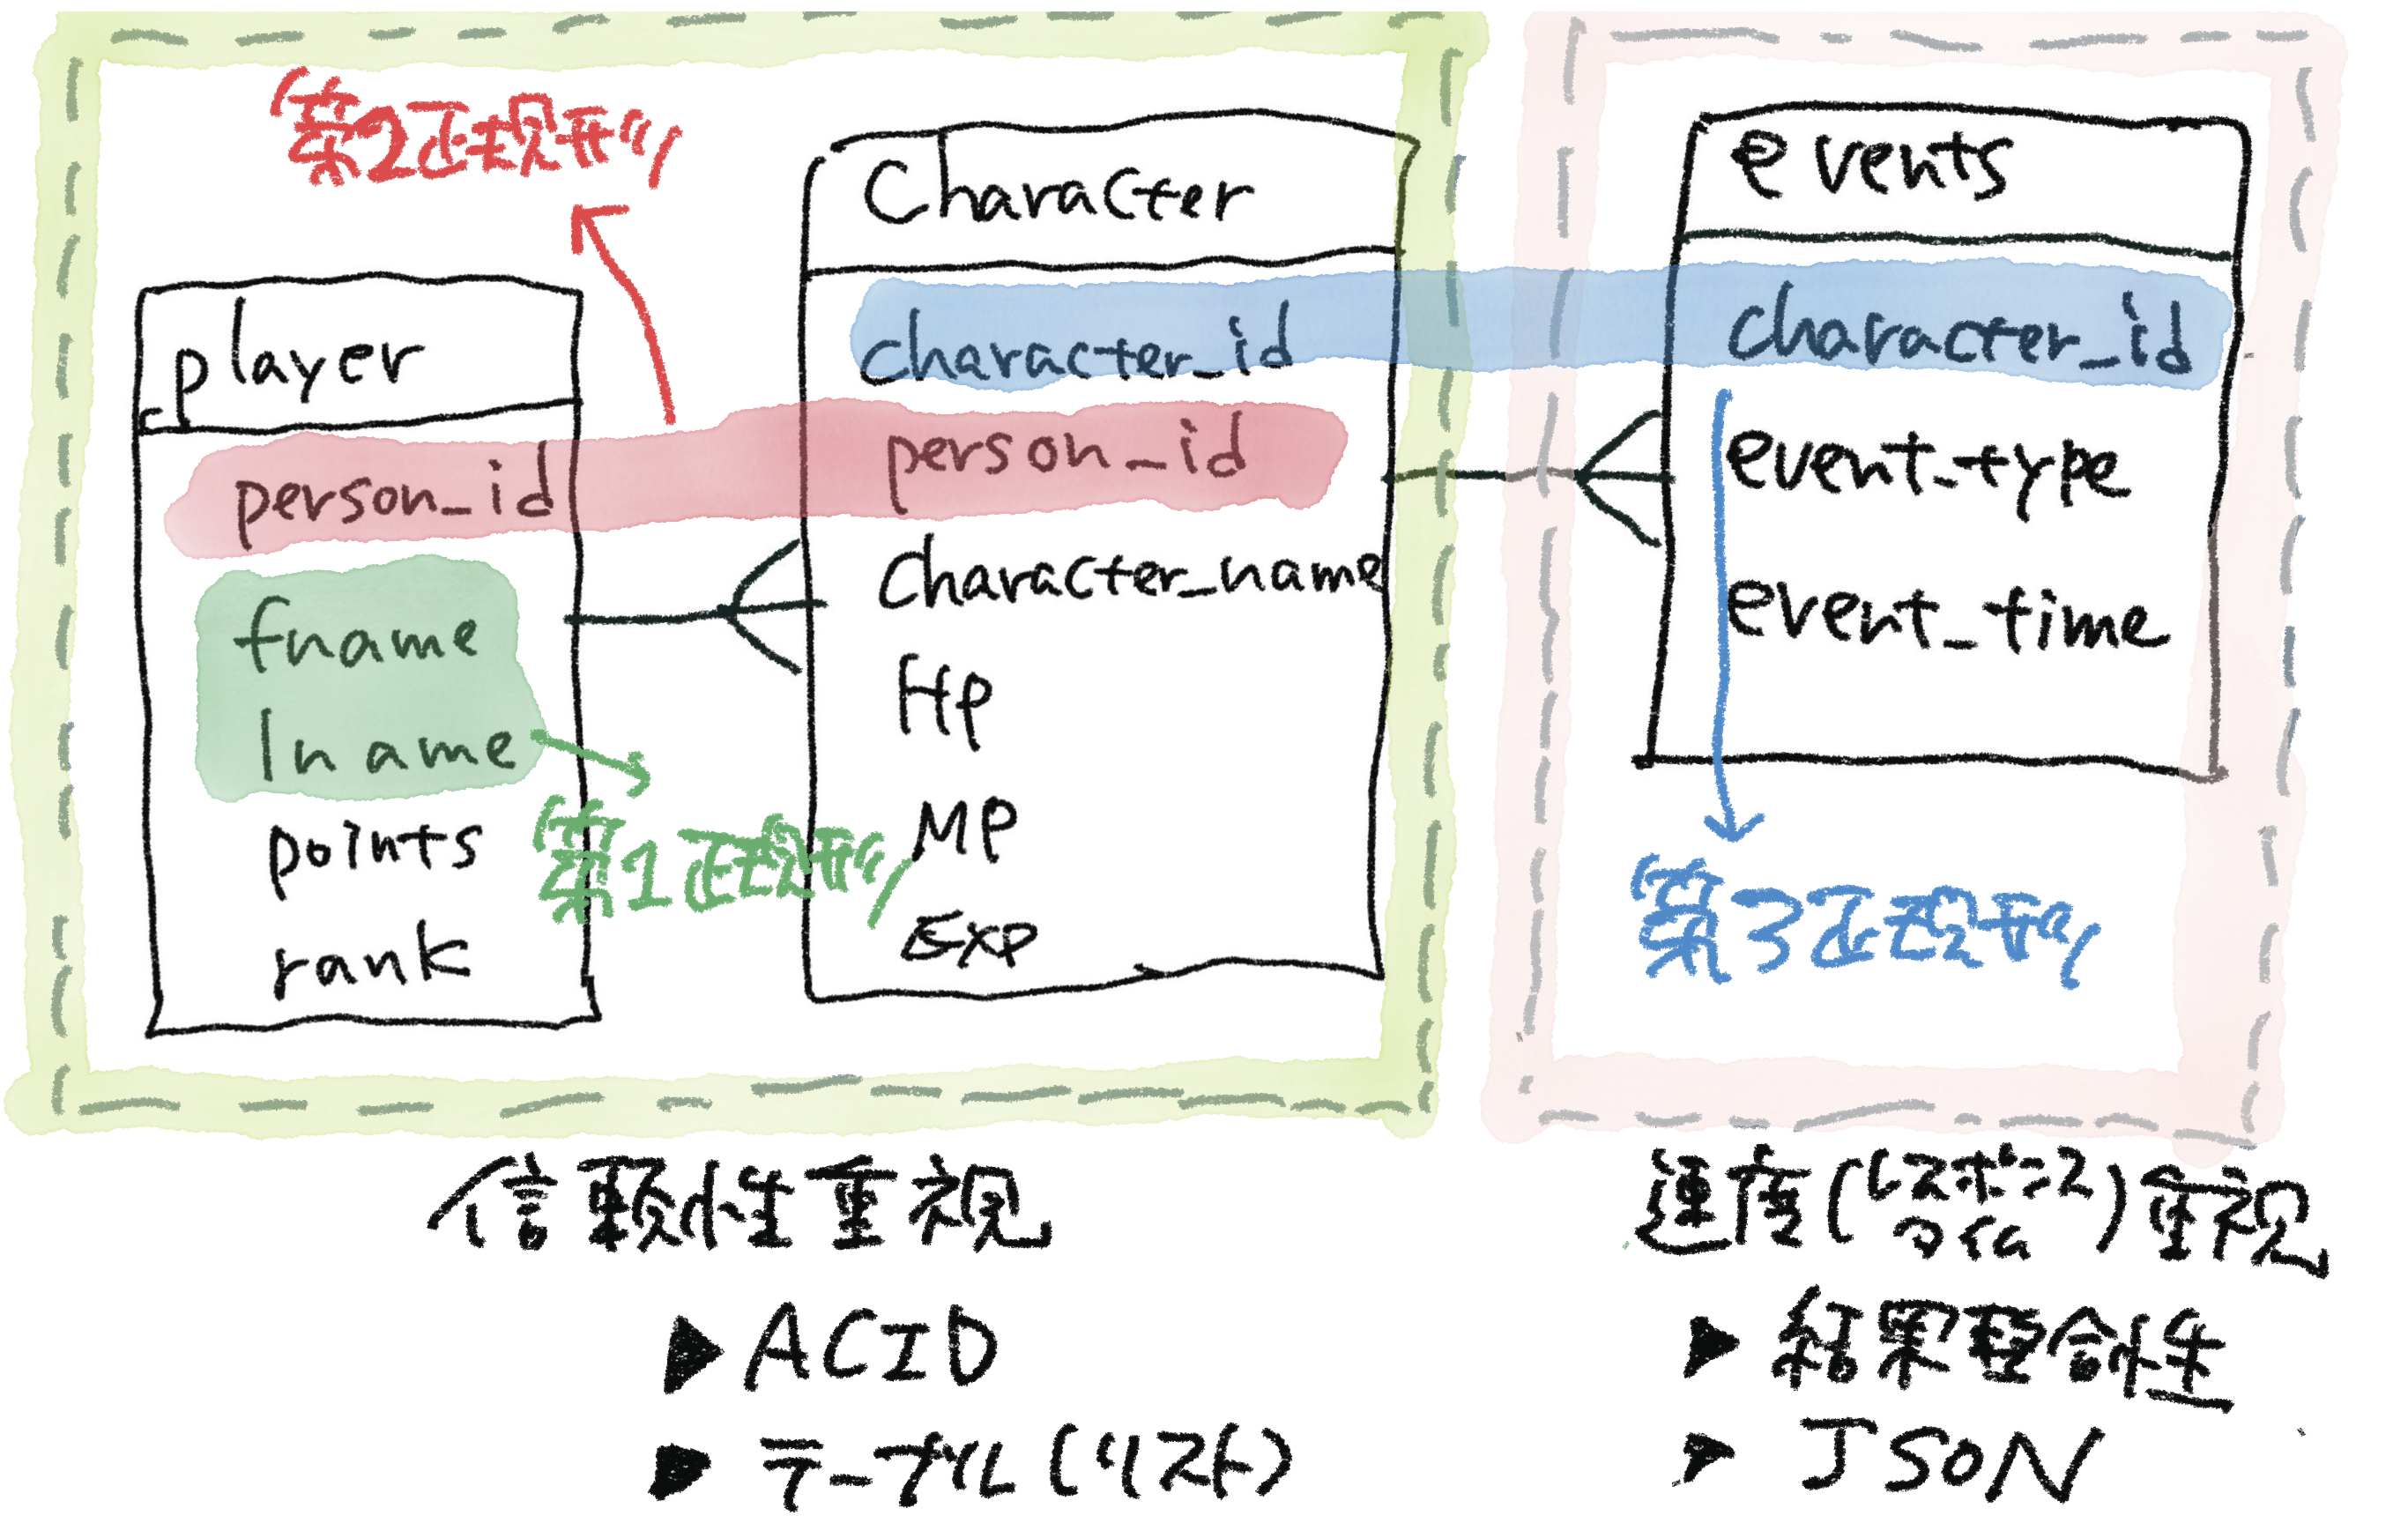 "第2正規形"
player
person_id
fname
lname
points
rank
"第1正規形"
Character
character_id
person_id
character_name
HP
MP
Exp
events
character_id
event_type
event_time
"第3正規形"
信頼性重視
▶ ACID
▶ テーブル(リスト)
速度(レスポンスタイム)重視
▶ 結果整合性
▶ JSON